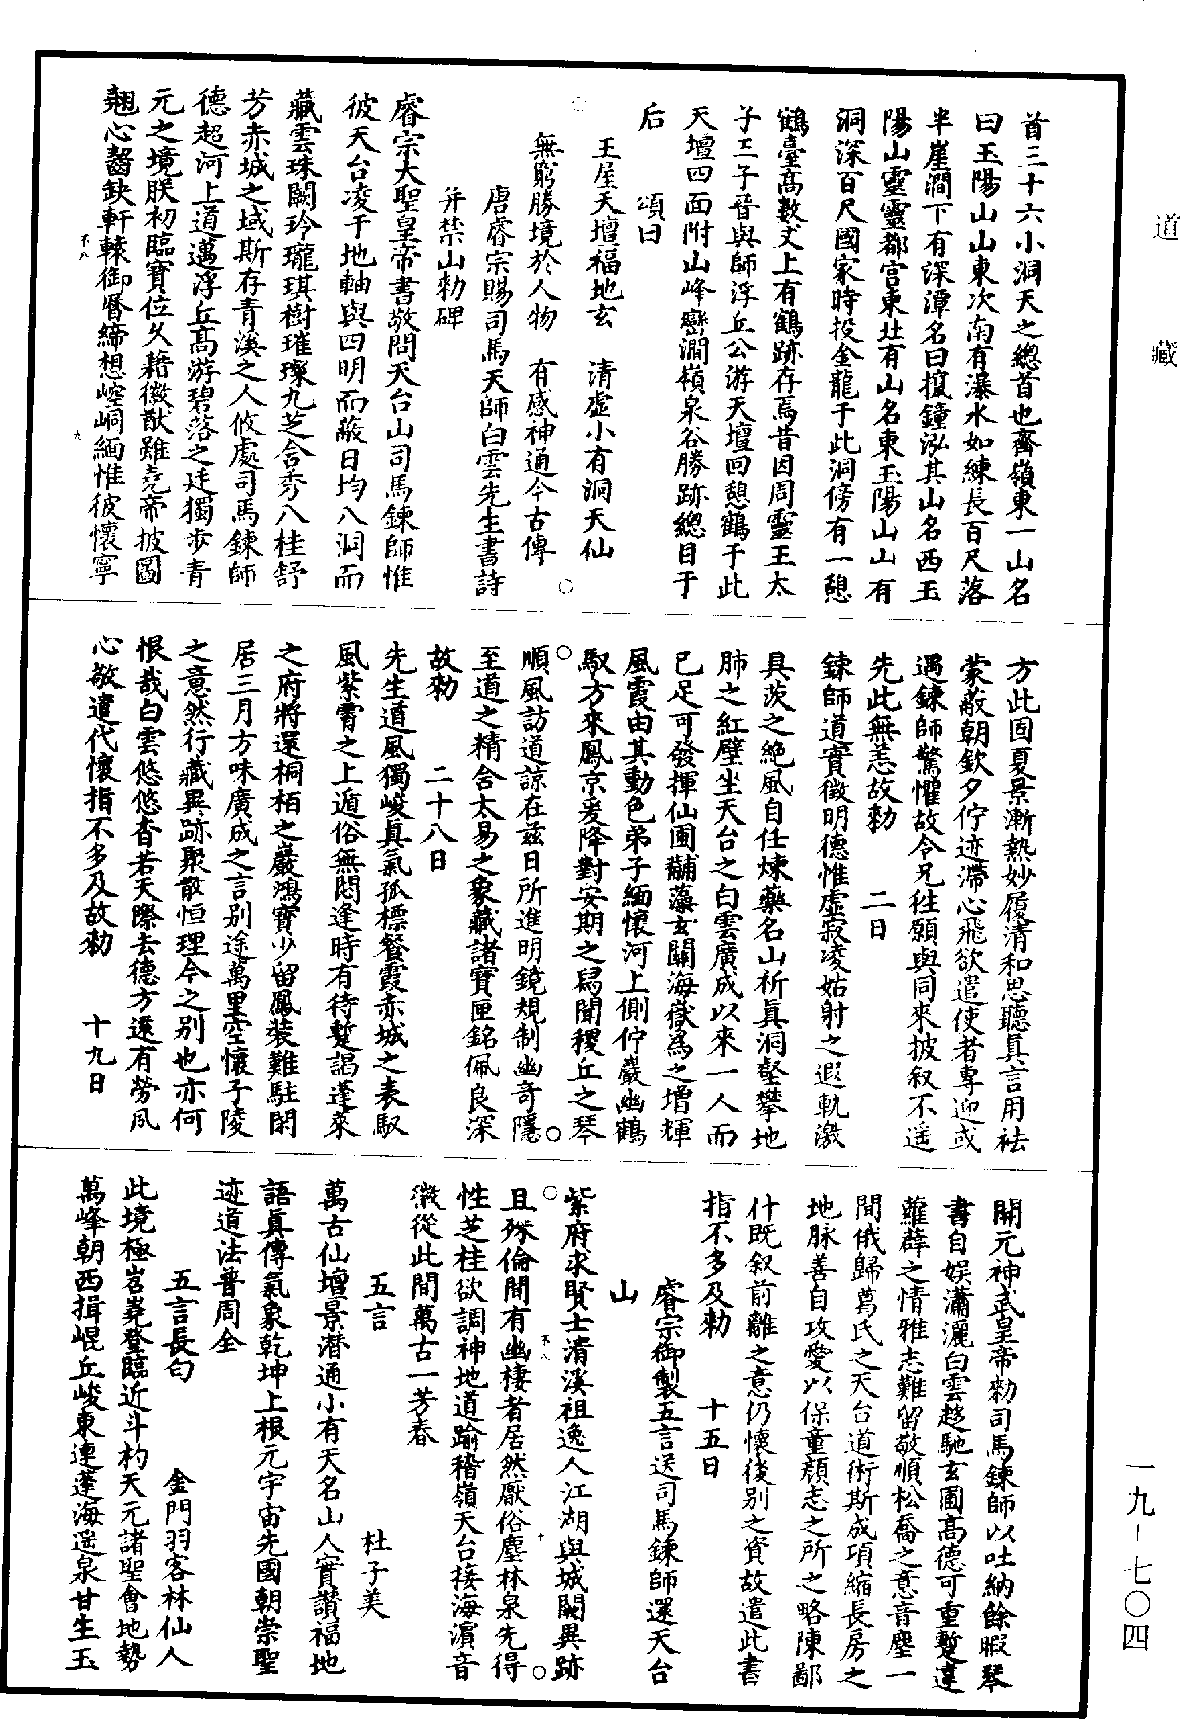 道藏
首三十六小洞天之總首也齊嶺東一山名
曰玉陽山山東次南有瀑水如練長百尺落
半崖澗下有深潭名曰掟鐘泓其山名西玉
陽山靈靈都宫東北有山名東玉陽山山有
洞深百尺國家時投金龍于此洞傍有一憩
鶴臺高數丈上有鶴跡存焉昔因周靈王太
子王子晉與師浮丘公游天壇回憩鶴于此
天壇四面附山峰巒澗嶺泉谷勝跡總目于
后　頌曰
王屋天壇福地玄　清虛小有洞天仙
無窮勝境於人物　有感神通今古傳
唐睿宗賜司馬天師白雲先生書詩
并禁山勑碑
睿宗大聖皇帝書敬問天台山司馬鍊師惟
彼天台凌于地軸與四明而蔽日均八洞而
藏雲珠闕玲瓏琪樹璀璨九芝含秀八桂舒
芳赤城之域斯存青溪之人攸處司馬鍊師
德超河上道邁浮丘高游碧落之廷獨步青
元之境朕初臨寶位久藉徽猷雖堯帝披圖
翹心齧缺軒轅御曆締想崆峒緬惟彼懷寧
不八
九
方此固夏景漸熱妙履清和思聽真言用袪
蒙蔽朝欽夕佇迹滯心飛欲遣使者專迎或
遇鍊師驚懼故令兄往願與同來披叙不遥
先此無恙故勑　二日
鍊師道實徵明德惟虛寂凌姑射之遐軌激
具茨之絶風自任煉藥名山祈真洞壑攀地
肺之紅壁坐天台之白雲廣成以來一人而
已足可發揮仙圃黼藻玄關海嶽爲之增輝
風霞由其動色弟子緬懷河上側佇巖幽鶴
馭方來鳳京爰降對安期之舄聞稷丘之琴
順風訪道諒在兹日所進明鏡規制幽奇隱
至道之精含太易之象藏諸寶匣銘佩良深
故勑　二十八日
先生道風獨峻真氣孤標餐霞赤城之表馭
風紫霄之上遁俗無悶逢時有待蹔謁蓬萊
之府將還桐栢之巖鴻寶少留鳳裝難駐閒
居三月方味廣成之言别途萬里空懷子陵
之意然行藏異跡聚散恒理今之别也亦何
恨哉白雲悠悠杳若天際去德方遠有勞夙
心敬遣代懷指不多及故勑　十九日
開元神武皇帝勑司馬鍊師以吐納餘暇琴
書自娱瀟灑白雲趍馳玄圃高德可重蹔違
蘿薜之情雅志難留敬順松喬之意音塵一
間俄歸葛氏之天台道術斯成項縮長房之
地脉善自攻愛以保童顔志之所之略陳鄙
什既叙前離之意仍懷後别之資故遣此書
指不多及勑　十五日
睿宗御製五言送司馬鍊師還天台
山
紫府求賢士清溪祖逸人江湖與城闕異跡
且殊倫間有幽棲者居然厭俗塵林泉先得
不八
十
性芝桂欲調神地道踰稽嶺天台接海濵音
徽從此間萬古一芳春
五言　杜子美
萬古仙壇景潜通小有天名山人實讃福地
語真傳氣象乾坤上根元宇宙先國朝崇聖
迹道法普周全
五言長句　金門羽客林仙人
此境極岧嶤登臨近斗杓天元諸聖會地勢
萬峰朝西揖崐丘峻東連蓬海遥泉甘生玉
一九-七〇四